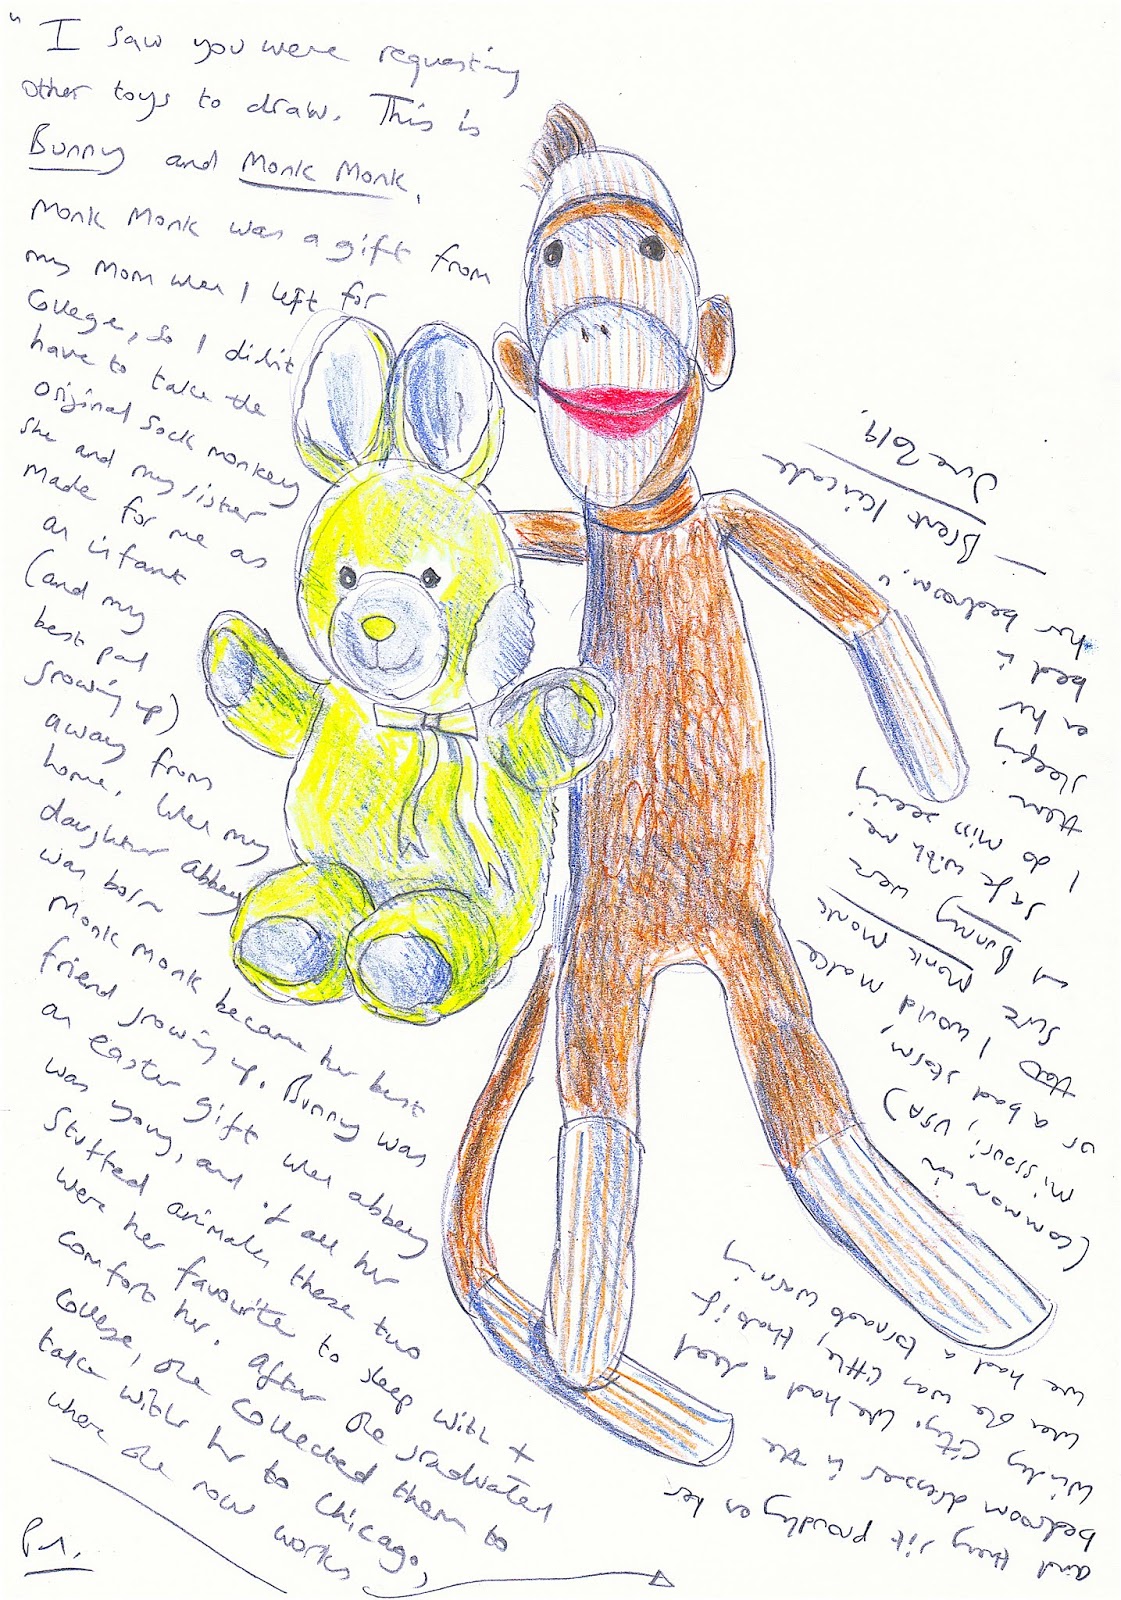 "I saw you were requesting
other toys to draw. This is
Bunny and Monk Monk.
Monk Monk was a gift from
my mom when I left for
College, so I didn't
have to take the
original sock monkey
she and my sister
made for me as
an infant
(and my
best pal
growing up)
away from
home. When my
daughter Abbey
was born
Monk Monk became her best
friend growing up. Bunny was
an easter gift when abbey
was young, and of all her
stuffed animals these two
were her favourite to sleep with +
comfort her. After she graduated
College, she collected them to
take with her to Chicago,
where she now works
and they sit proudly on her
bedroom dresser in the
Windy City. We had a deal
when she was little, that if
we had a tornado warning
(common in
Missouri, USA)
or a bad storm,
that I would make
sure Monk Monk
and Bunny were
safe with me.
I do miss seeing
them sleeping
on her
bed in
her bedroom."
— Brent Kincade
June 2019.